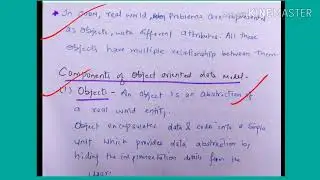 In OODM, real world, problems are represented
as objects, with different attributes. All these
objects have multiple relationship between them.
Components of Object oriented data model-
(1) Objects - An object is an abstraction of
a real world entity.
Object encapsulates data & code into a single
unit which provides data abstraction by
hiding the implementation details from the
user.
KINEMASTER